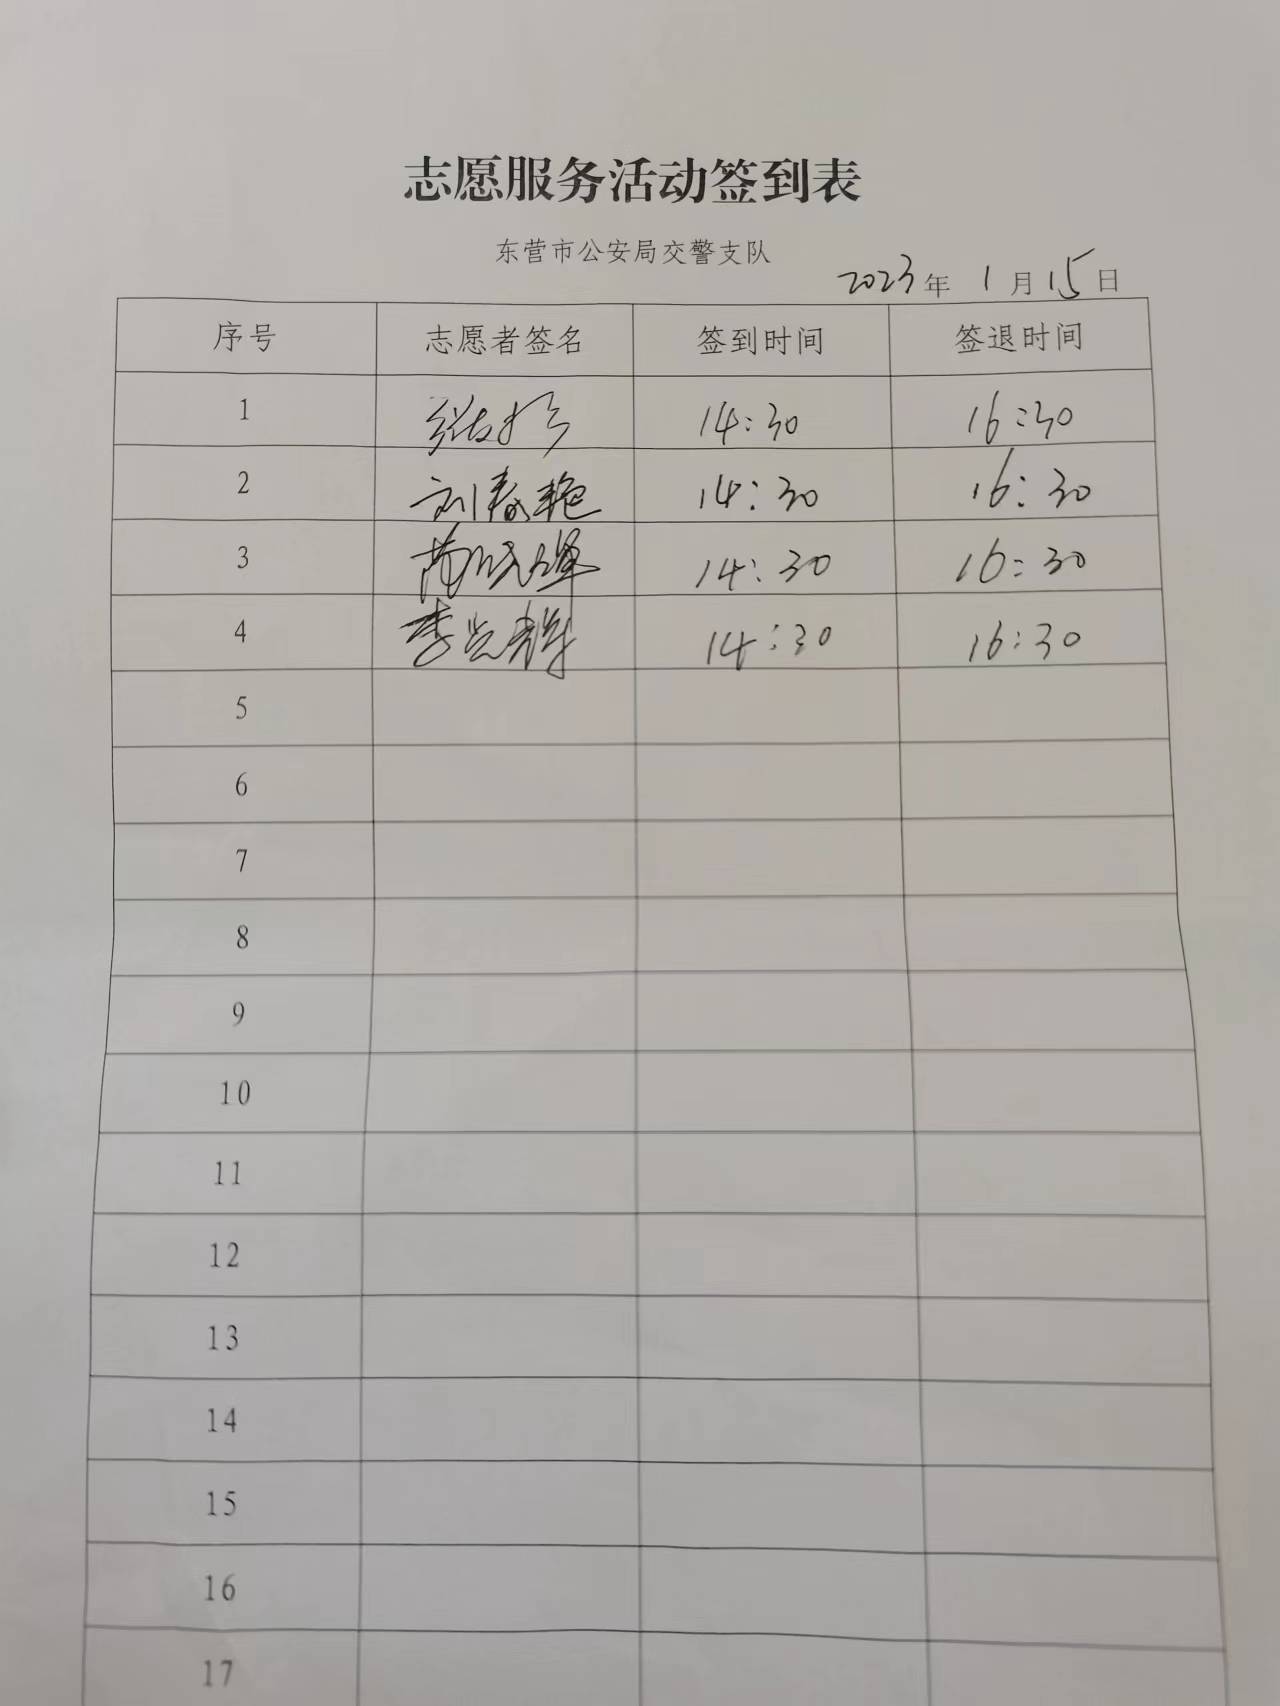 志愿服务活动签到表
东营市公安局交警支队
2023年 1月15日
序号 志愿者签名 签到时间 签退时间
1 张 14:30 16:30
2 刘春艳 14:30 16:30
3 14:30 16:30
4 李光辉 14:30 16:30
5
6
7
8
9
10
11
12
13
14
15
16
17